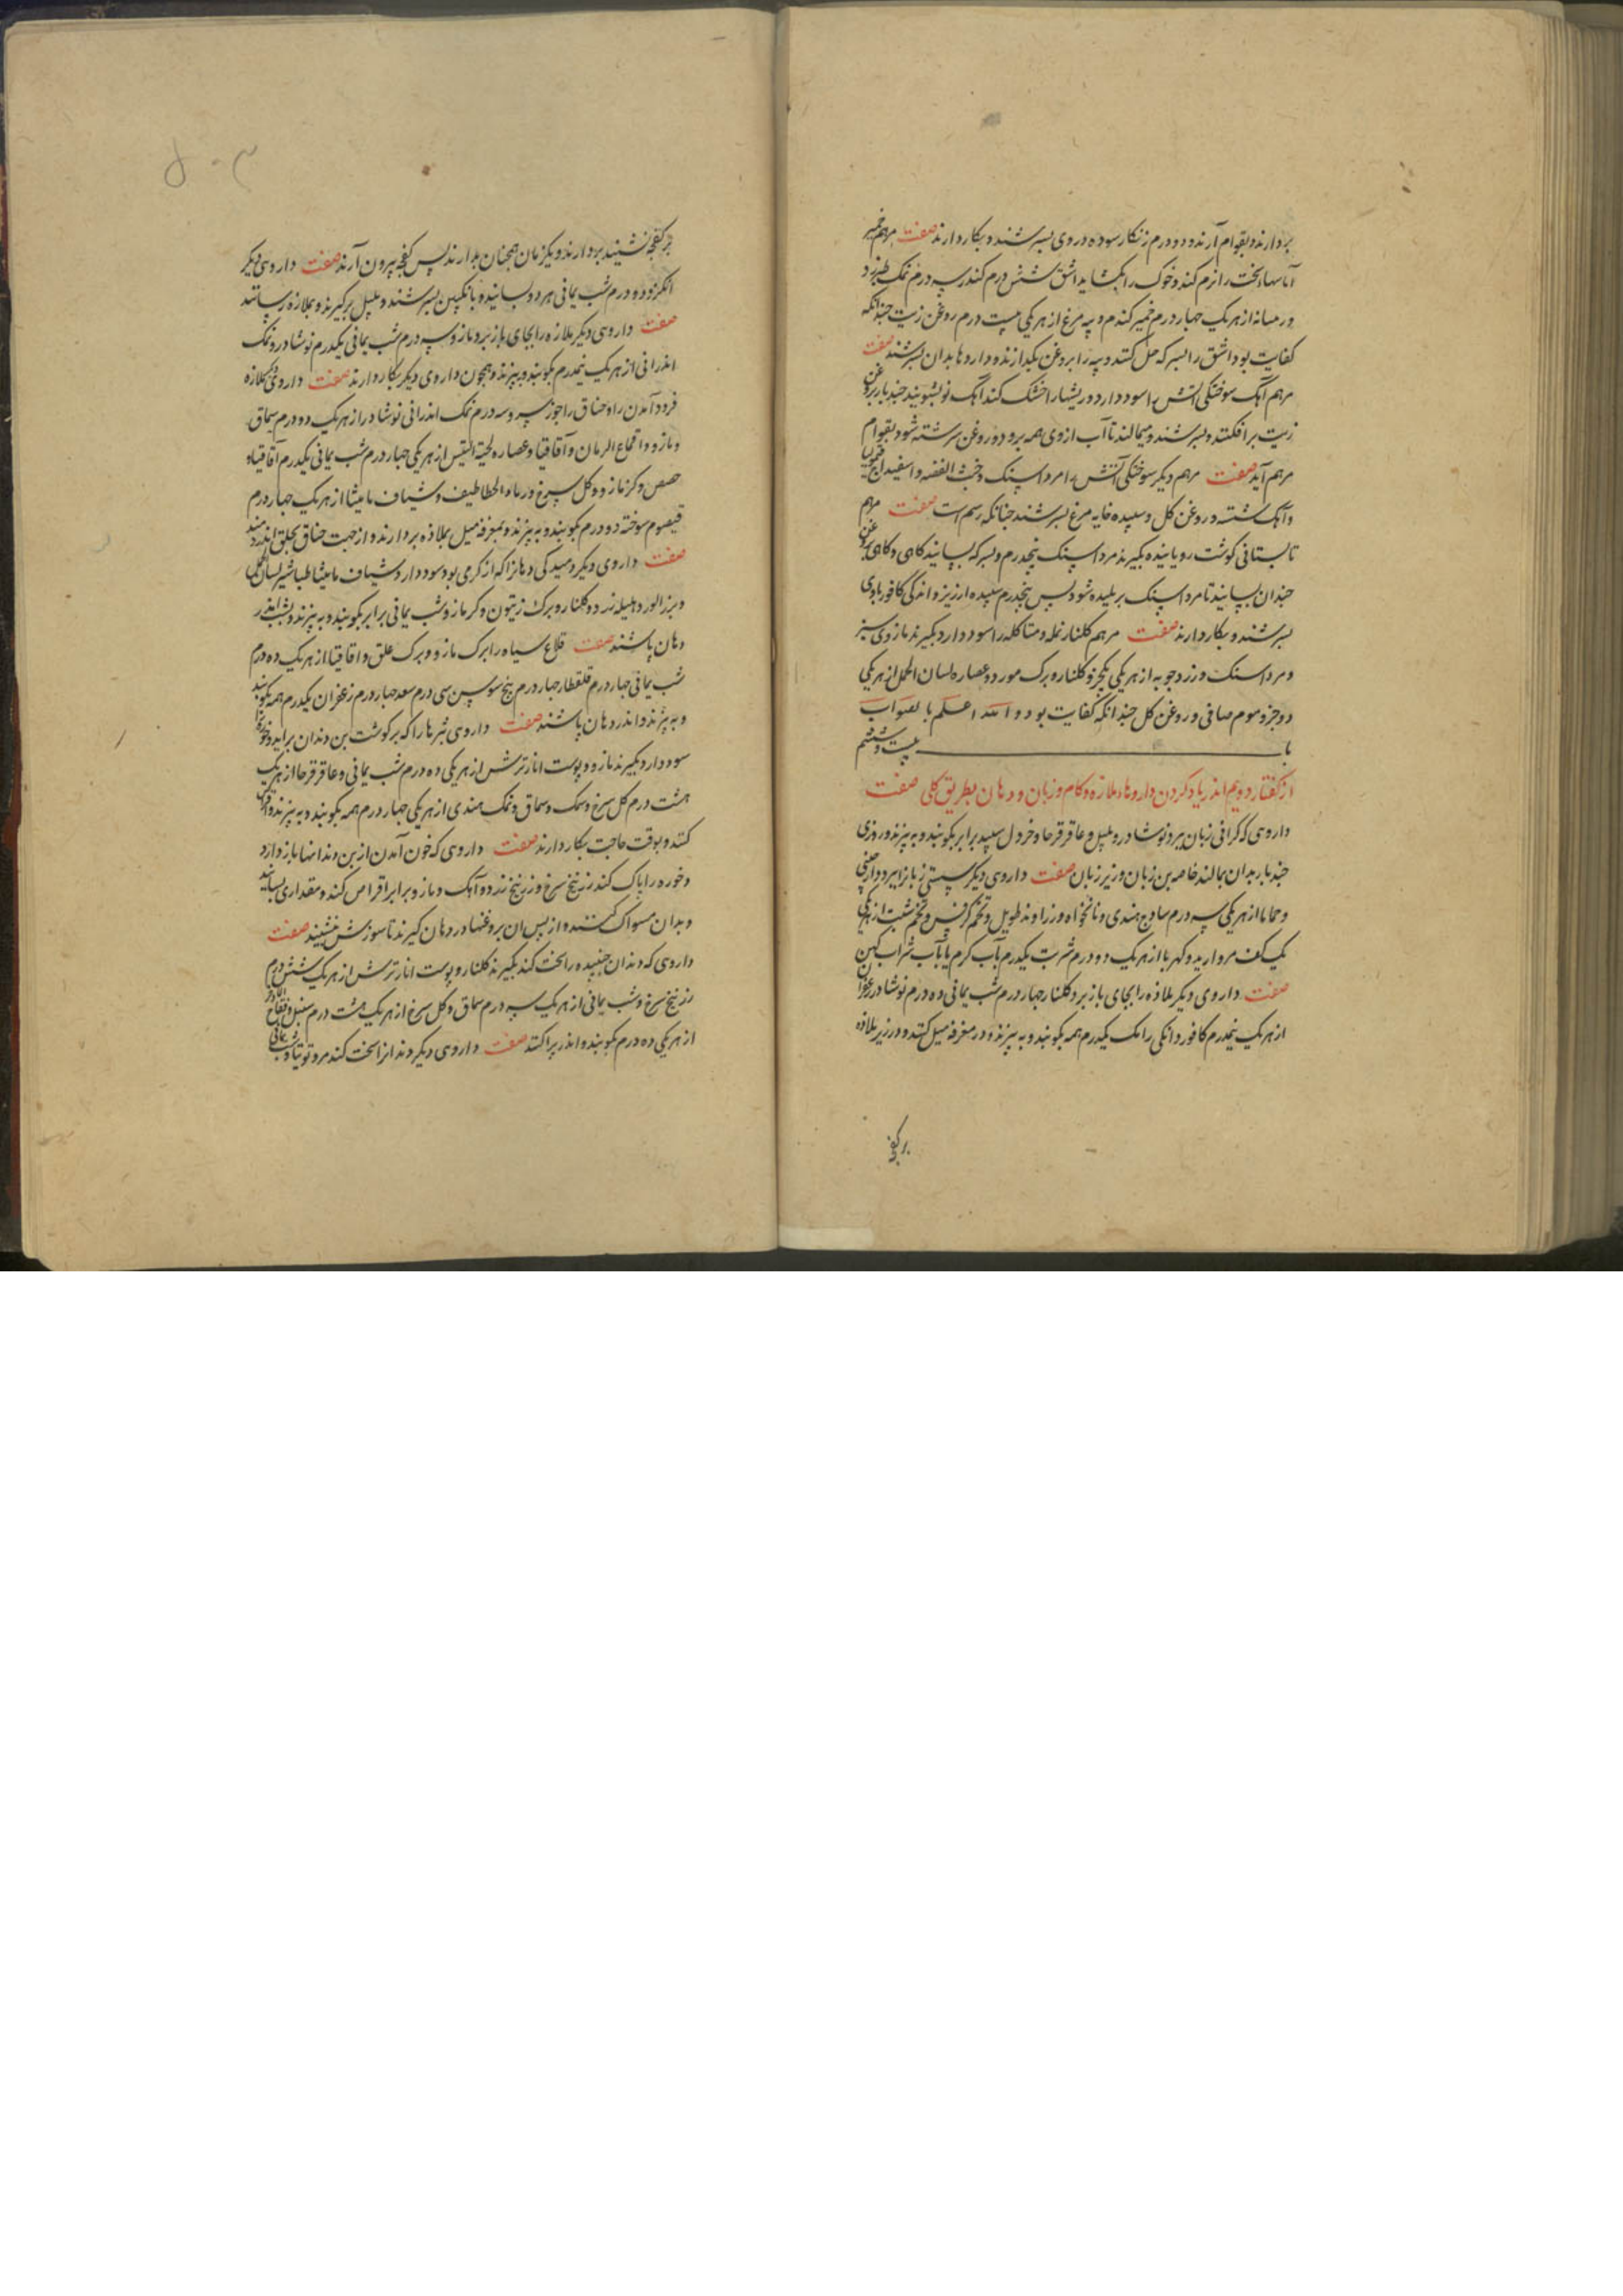 بردارند و بقوام آرند و دو درم زنکار سوده در وی بسرشند و بکار دارند صفت مرهم خمیر
آماسهاء سخت را نرم کند و خوک را بکشاید اشق شش درم کندر سه درم نمک طبرزد
و رمیانه از هر یک چهار درم خمیر کندم و پیه مرغ از هر یکی بیست درم روغن زیت جندانکه
کفایت بود اشق را بسرکه حل کنند و پیه را بروغن بکدازند و داروها بدان بسرشند صفت
مرهم آهک سوختکی آتش را سود دارد و ریشها را خشک کند آهک نو بشویند جند بار بروغن
زیت بر افکنند و بسرشند و میمالند تا آب از وی همه برود و روغن سرشته شود بقوام
مرهم آید صفت مرهم دیکر سوختکی آتش را مرداسنک و خبث الفضه و اسفیداج و قیمولیا
و آهک شسته در روغن کل و سپیده خایه مرغ بسرشند جنانکه رسم است صفت مرهم
تابستانی کوشت رویاینده بکیرند مرداسنک پنجدرم و بسرکه بسایند کاهی و کاهی بروغن
جندان بسایند تا مرداسنک بریلیده شود پس پنجدرم سپیده ارزیز و اندکی کافور با وی
بسرشند و بکار دارند صفت مرهم کلنار نمله و متاکله را سود دارد بکیرند مازوی سبز
و مرداسنک و زردجوبه از هر یکی یکجزو کلنار و برک مورد و عصاره لسان الحمل از هر یکی
دو جزو موم صافی و روغن کل جندانکه کفایت بود و الله اعلم بالصواب
با بیست و ششم
از کفتار دویم اندر یاد کردن داروهاء ملازه و کام و زبان و دهان بطریق کلی صفت
داروی که کرانی زبان ببرد نوشادر و پلپل و عاقرقرحا و خردل سپید برابر بکوبند و به بیزند و روزی
جند بار بدان بمالند خاصه بن زبان و زیر زبان صفت داروی دیکر سستی زبانرا ببرد دارچینی
و حماما از هر یکی سه درم ساذج هندی و نانخواه و زراوند طویل و تخم کرفس و تخم شبت از هر یکی
یک کف مروارید و کهربا از هر یک دو درم شربت یکدرم بآب کرم یا بآب شراب کهن
صفت داروی دیکر ملاذه را بجای باز برد کلنار جهار درم شب یمانی ده درم نوشادر زعفران
از هر یک نیمدرم کافور دانکی رامک یکدرم همه بکوبند و به بیزند و در مغرفه میل کنند و در زیر ملاذه
بر کفچه
بر کفچه نشیند بردارند و یکزمان همجنان بدارند پس کفچه بیرون آرند صفت داروی دیکر
انکزد و دو درم شب یمانی هر دو بسایند و بانکبین بسرشند و بمیل برکیرند و بملازه رسانند
صفت داروی دیکر ملازه را بجای باز برد مازو سه درم شب یمانی یکدرم نوشادر و نمک
اندرانی از هر یک نیمدرم بکوبند و به بیزند و همجون داروی دیکر بکار دارند صفت داروی که ملازه
فرود آمدن را و خناق را جوز سرو سه درم نمک اندرانی نوشادر از هر یک دو درم سماق
و مازو و اقماع الرمان و آقاقیا و عصاره لحیة التیس از هر یکی جهار درم شب یمانی یکدرم آقاقیا و
حضض و کزمازو و کل سرخ و رماد الخطاطیف و شیاف مامیثا از هر یک جهار درم
قیصوم سوخته دو درم بکوبند و به بیزند و بمغرفه میل بملاذه بردارند و از جهت خناق بحلق اندر دمند
صفت داروی دیکر دمیدکی دهانرا که از کرمی بود سود دارد شیاف مامیثا طباشیر لسان الحمل
و بزر الورد و هلیله زرد و کلنار و برک زیتون و کزمازو شب یمانی برابر بکوبند و به بیزند و بشب اندر
دهان پاشند صفت قلاع سیاه را برک مازو و برک علق و اقاقیا از هر یک ده درم
شب یمانی جهار درم قلقطار جهار درم بیخ سوسن سی درم سعد جهار درم زعفران یکدرم همه بکوبند
و به بیزند و اندر دهان پاشند صفت داروی بثرها را که بر کوشت بن دندان براید و خوره را
سود دارد بکیرند مازو و پوست انار ترش از هر یکی ده درم شب یمانی و عاقرقرحا از هر یک
هشت درم کل سرخ و سمک و سماق و نمک هندی از هر یکی جهار درم همه بکوبند و به بیزند و اقراص
کنند و بوقت حاجت بکار دارند صفت داروی که خون آمدن از بن دندانها باز دارد
و خوره را پاک کند زرنیخ سرخ و زرنیخ زرد و آهک و مازو برابر اقراص کنند و مقداری بسایند
و بدان مسواک کنند و از پس ان بروغنها در دهان کیرند تا سوزش بنشیند صفت
داروی که دندان جنبیده را سخت کند بکیرند کلنار و پوست انار ترش از هر یک شش درم
زرنیخ سرخ و شب یمانی از هر یک سه درم سماق و کل سرخ از هر یک هشت درم سنبل و فقاح اذخر
از هر یکی ده درم بکوبند و اندر پراکنند صفت داروی دیکر دندانرا سخت کند مرو توتیا و شب یمانی